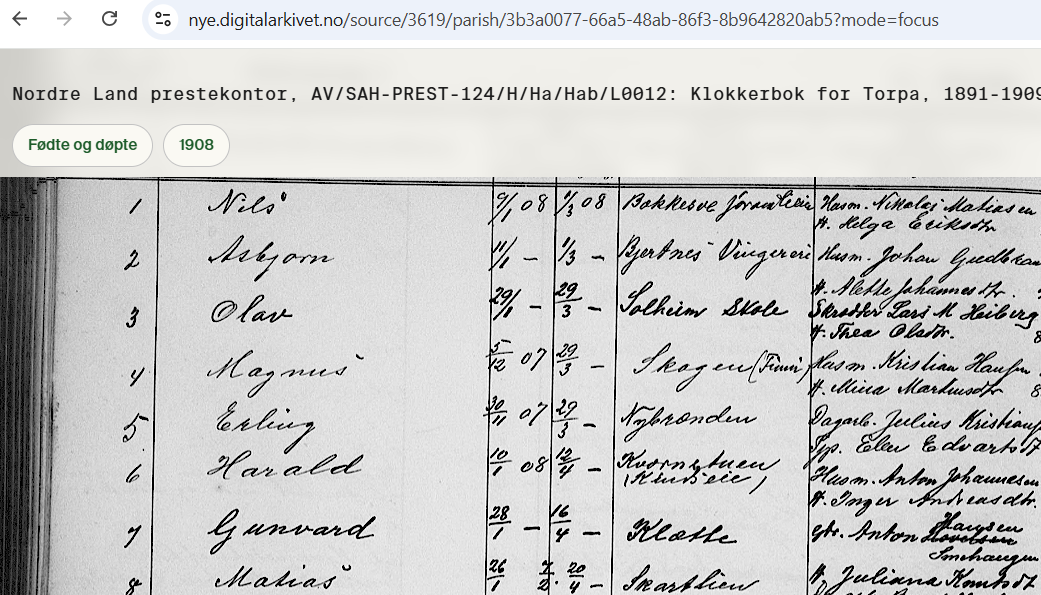 nye.digitalarkivet.no/source/3619/parish/3b3a0077-66a5-48ab-86f3-8b9642820ab5?mode=focus
Nordre Land prestekontor, AV/SAH-PREST-124/H/Ha/Hab/L0012: Klokkerbok for Torpa, 1891-1909
Fødte og døpte 1908
1 Nils 9/1 08 1/3 08 Husm. Nikolai Matiasen
H. Helga Eriksdtr
2 Asbjørn 11/1 – 1/3 – Bjertnes Husm. Johan
H. Alette Johannesdtr.
3 Olav 29/1 – 29/3 – Solheim Skole Skrædder Lars M Heiberg
H. Thea Olsdtr.
4 Magnus 5/12 07 29/3 – Skogen Husm. Kristian Hansen
H. Mina Martinusdtr
5 Erling 30/11 07 29/3 – Nybrænden Dagarb. Julius
Elen Edvartsdt
6 Harald 10/1 08 12/4 – Husm. Anton Johannesen
H. Inger Andreasdtr.
7 Gunvard 28/1 – 16/4 – Klætte Anton Hansen
Smehaugen
8 Matias 26/1 20/4 – Skartlien Juliana Knutsdt